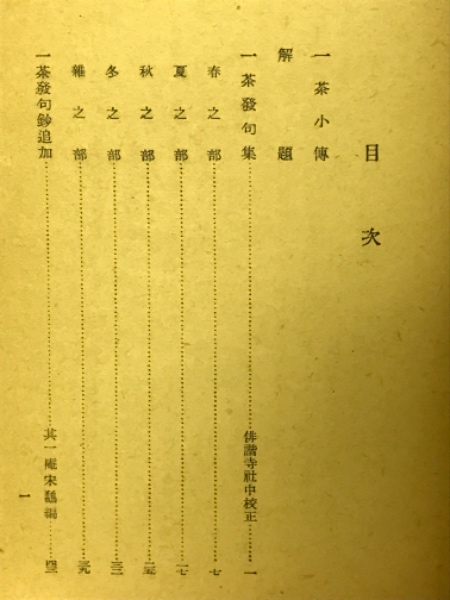 目次
一茶小傳
解題
一茶發句集……俳諧寺社中校正……一
春之部……七
夏之部……一七
秋之部……二五
冬之部……三二
雜之部……三九
一茶發句鈔追加……其一庵宋鵡編……四三
一